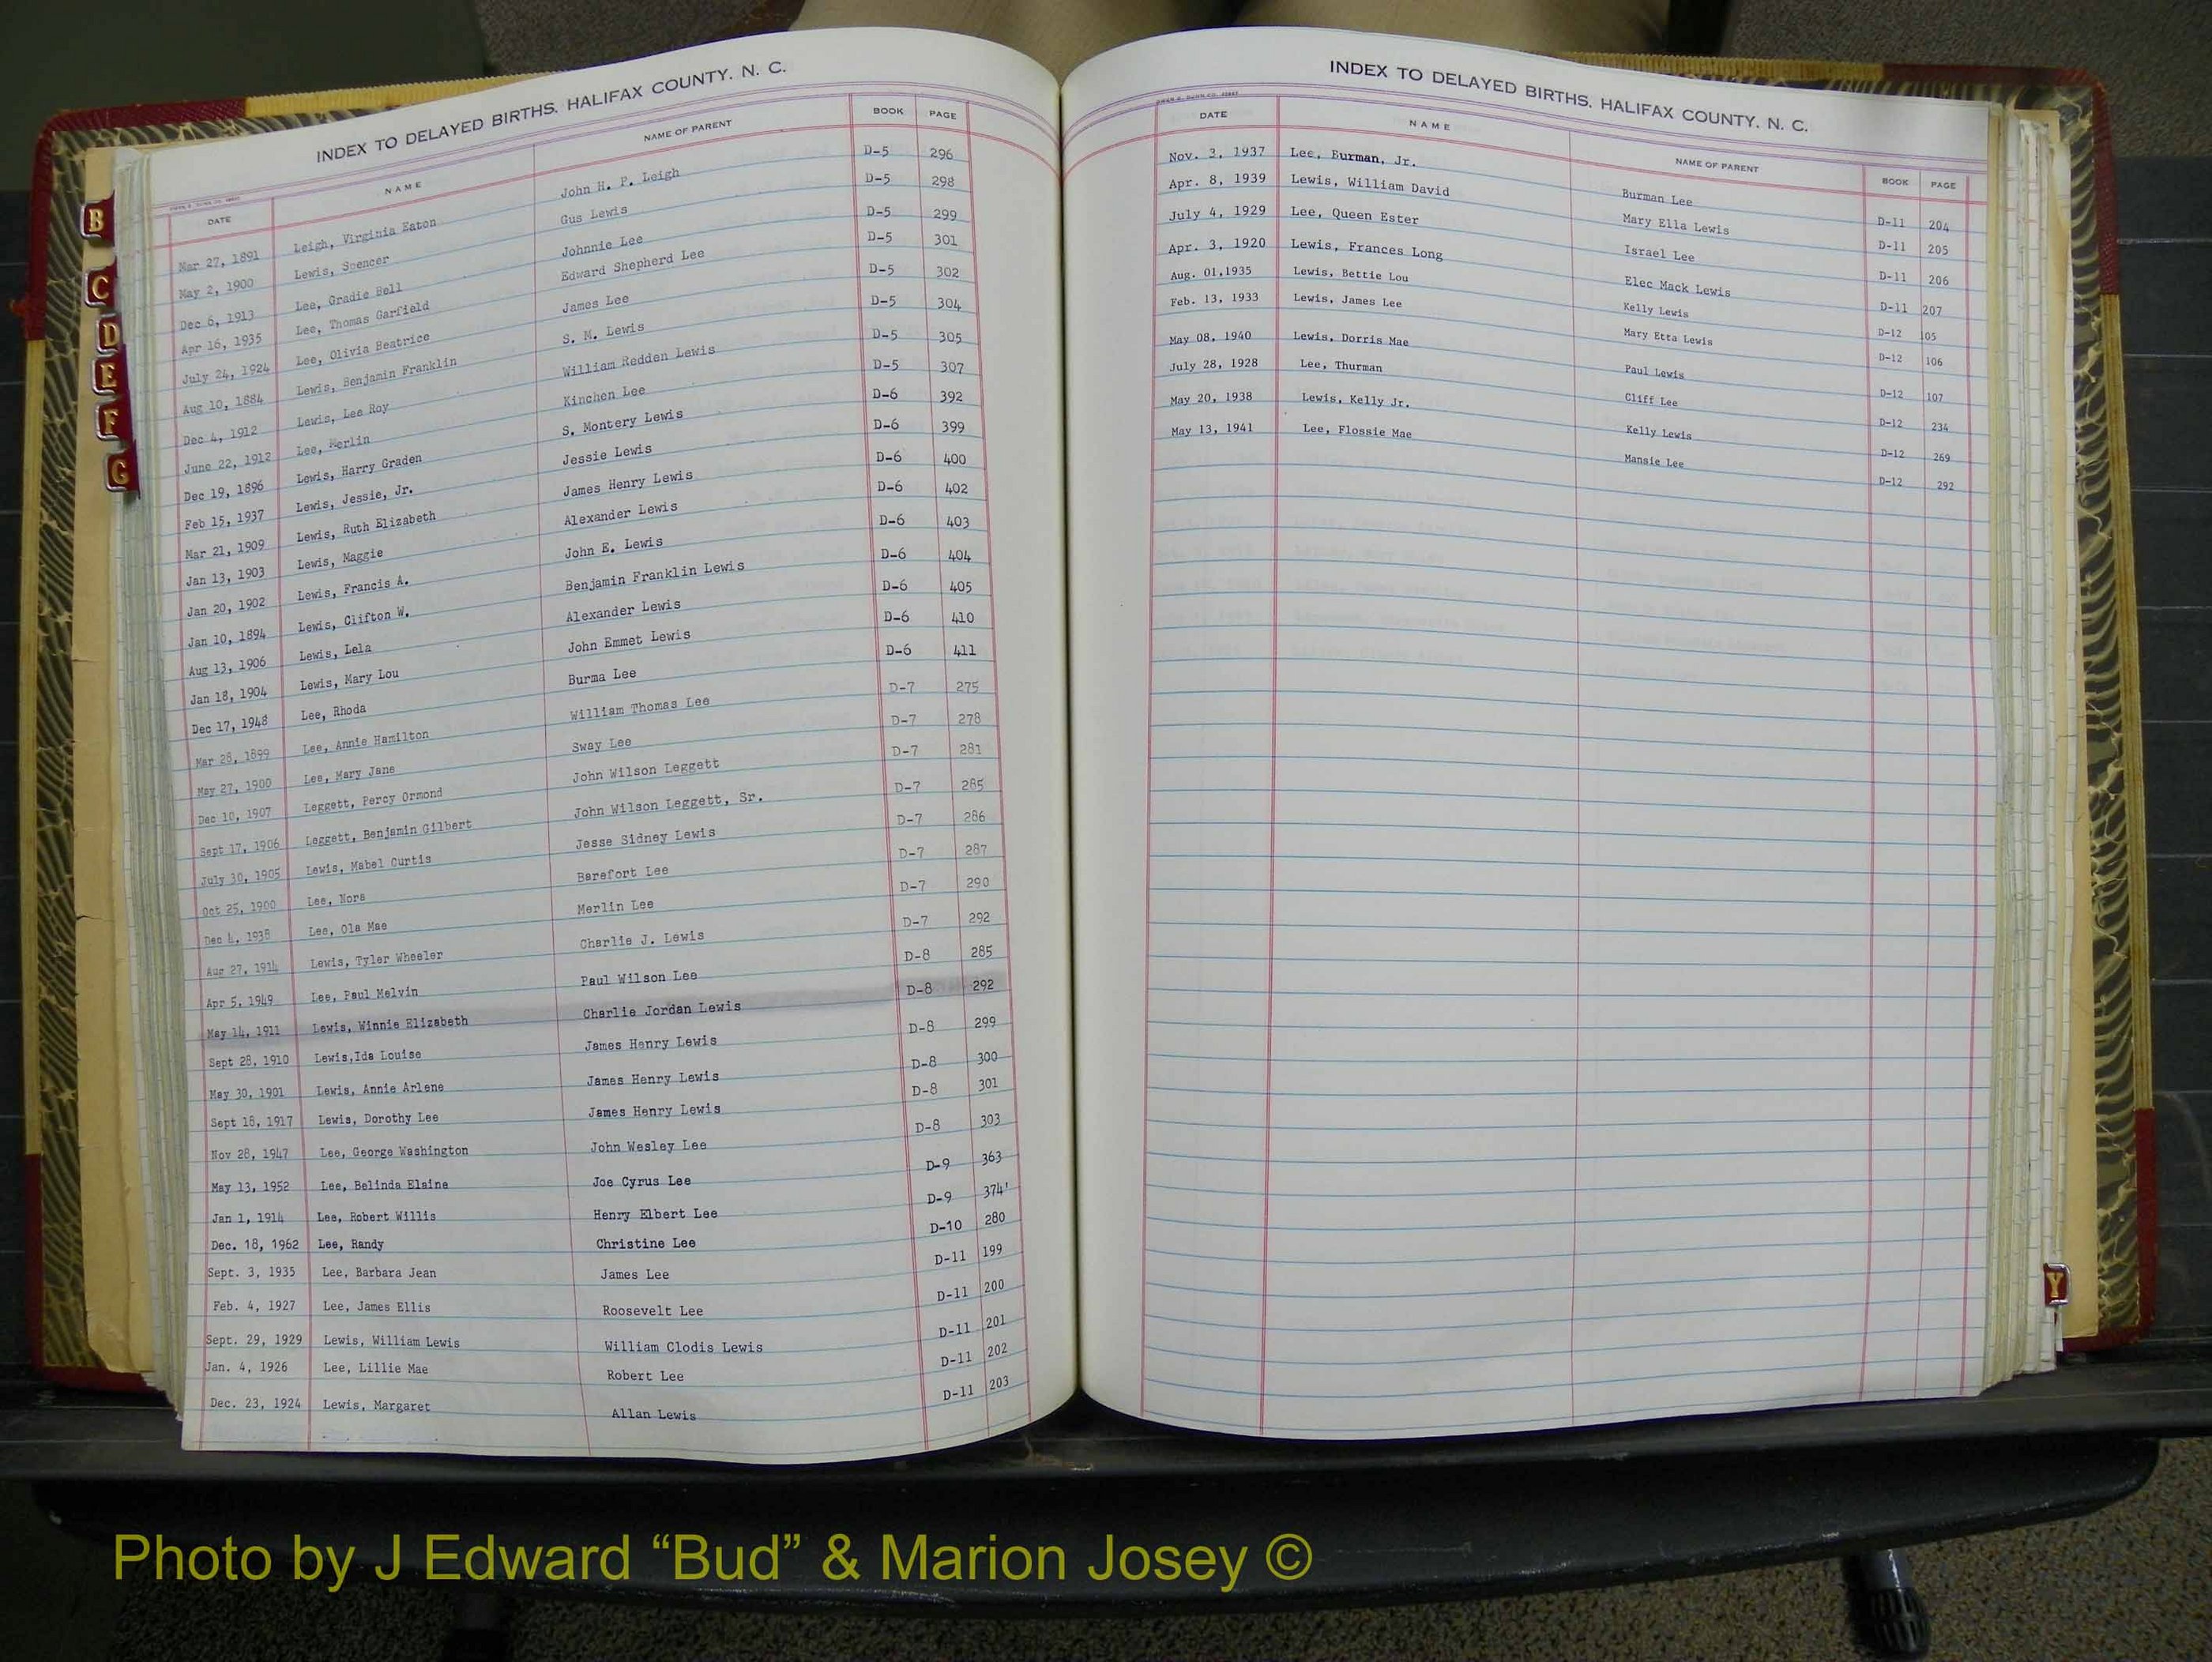 INDEX TO DELAYED BIRTHS, HALIFAX COUNTY, N. C.
DATE NAME NAME OF PARENT BOOK PAGE
Mar 27, 1891 Leigh, Virginia Eaton John H. P. Leigh D-5 296
May 2, 1900 Lewis, Spencer Gus Lewis D-5 298
Dec 6, 1913 Lee, Gradie Bell Johnnie Lee D-5 299
Apr 16, 1935 Lee, Thomas Garfield Edward Shepherd Lee D-5 301
July 24, 1924 Lee, Olivia Beatrice James Lee D-5 302
Aug 10, 1884 Lewis, Benjamin Franklin S. M. Lewis D-5 304
Dec 4, 1912 Lewis, Lee Roy William Redden Lewis D-5 305
June 22, 1912 Lee, Merlin Kinchen Lee D-5 307
Dec 19, 1896 Lewis, Harry Graden S. Montery Lewis D-6 392
Feb 15, 1937 Lewis, Jessie, Jr. Jessie Lewis D-6 399
Mar 21, 1909 Lewis, Ruth Elizabeth James Henry Lewis D-6 400
Jan 13, 1903 Lewis, Maggie Alexander Lewis D-6 402
Jan 20, 1902 Lewis, Francis A. John E. Lewis D-6 403
Jan 10, 1894 Lewis, Clifton W. Benjamin Franklin Lewis D-6 404
Aug 13, 1906 Lewis, Lela Alexander Lewis D-6 405
Jan 18, 1904 Lewis, Mary Lou John Emmet Lewis D-6 410
Dec 17, 1948 Lee, Rhoda Burma Lee D-6 411
Mar 28, 1899 Lee, Annie Hamilton William Thomas Lee D-7 275
May 27, 1900 Lee, Mary Jane Sway Lee D-7 278
Dec 10, 1907 Leggett, Percy Ormond John Wilson Leggett D-7 281
Sept 17, 1906 Leggett, Benjamin Gilbert John Wilson Leggett, Sr. D-7 285
July 30, 1905 Lewis, Mabel Curtis Jesse Sidney Lewis D-7 286
Oct 25, 1900 Lee, Nora Barefort Lee D-7 287
Dec 4, 1938 Lee, Ola Mae Merlin Lee D-7 290
Aug 27, 1914 Lewis, Tyler Wheeler Charlie J. Lewis D-7 292
Apr 5, 1949 Lee, Paul Melvin Paul Wilson Lee D-8 285
May 14, 1911 Lewis, Winnie Elizabeth Charlie Jordan Lewis D-8 292
Sept 28, 1910 Lewis,Ida Louise James Henry Lewis D-8 299
May 30, 1901 Lewis, Annie Arlene James Henry Lewis D-8 300
Sept 18, 1917 Lewis, Dorothy Lee James Henry Lewis D-8 301
Nov 28, 1947 Lee, George Washington John Wesley Lee D-8 303
May 13, 1952 Lee, Belinda Elaine Joe Cyrus Lee D-9 363
Jan 1, 1914 Lee, Robert Willis Henry Elbert Lee D-9 374
Dec. 18, 1962 Lee, Randy Christine Lee D-10 280
Sept. 3, 1935 Lee, Barbara Jean James Lee D-11 199
Feb. 4, 1927 Lee, James Ellis Roosevelt Lee D-11 200
Sept. 29, 1929 Lewis, William Lewis William Clodis Lewis D-11 201
Jan. 4, 1926 Lee, Lillie Mae Robert Lee D-11 202
Dec. 23, 1924 Lewis, Margaret Allan Lewis D-11 203
INDEX TO DELAYED BIRTHS, HALIFAX COUNTY, N. C.
DATE NAME NAME OF PARENT BOOK PAGE
Nov. 3, 1937 Lee, Burman, Jr. Burman Lee D-11 204
Apr. 8, 1939 Lewis, William David Mary Ella Lewis D-11 205
July 4, 1929 Lee, Queen Ester Israel Lee D-11 206
Apr. 3, 1920 Lewis, Frances Long Elec Mack Lewis D-11 207
Aug. 01,1935 Lewis, Bettie Lou Kelly Lewis D-12 105
Feb. 13, 1933 Lewis, James Lee Mary Etta Lewis D-12 106
May 08, 1940 Lewis, Dorris Mae Paul Lewis D-12 107
July 28, 1928 Lee, Thurman Cliff Lee D-12 234
May 20, 1938 Lewis, Kelly Jr. Kelly Lewis D-12 269
May 13, 1941 Lee, Flossie Mae Mansie Lee D-12 292
B
C
D
E
F
G
Y
Photo by J Edward “Bud” & Marion Josey ©